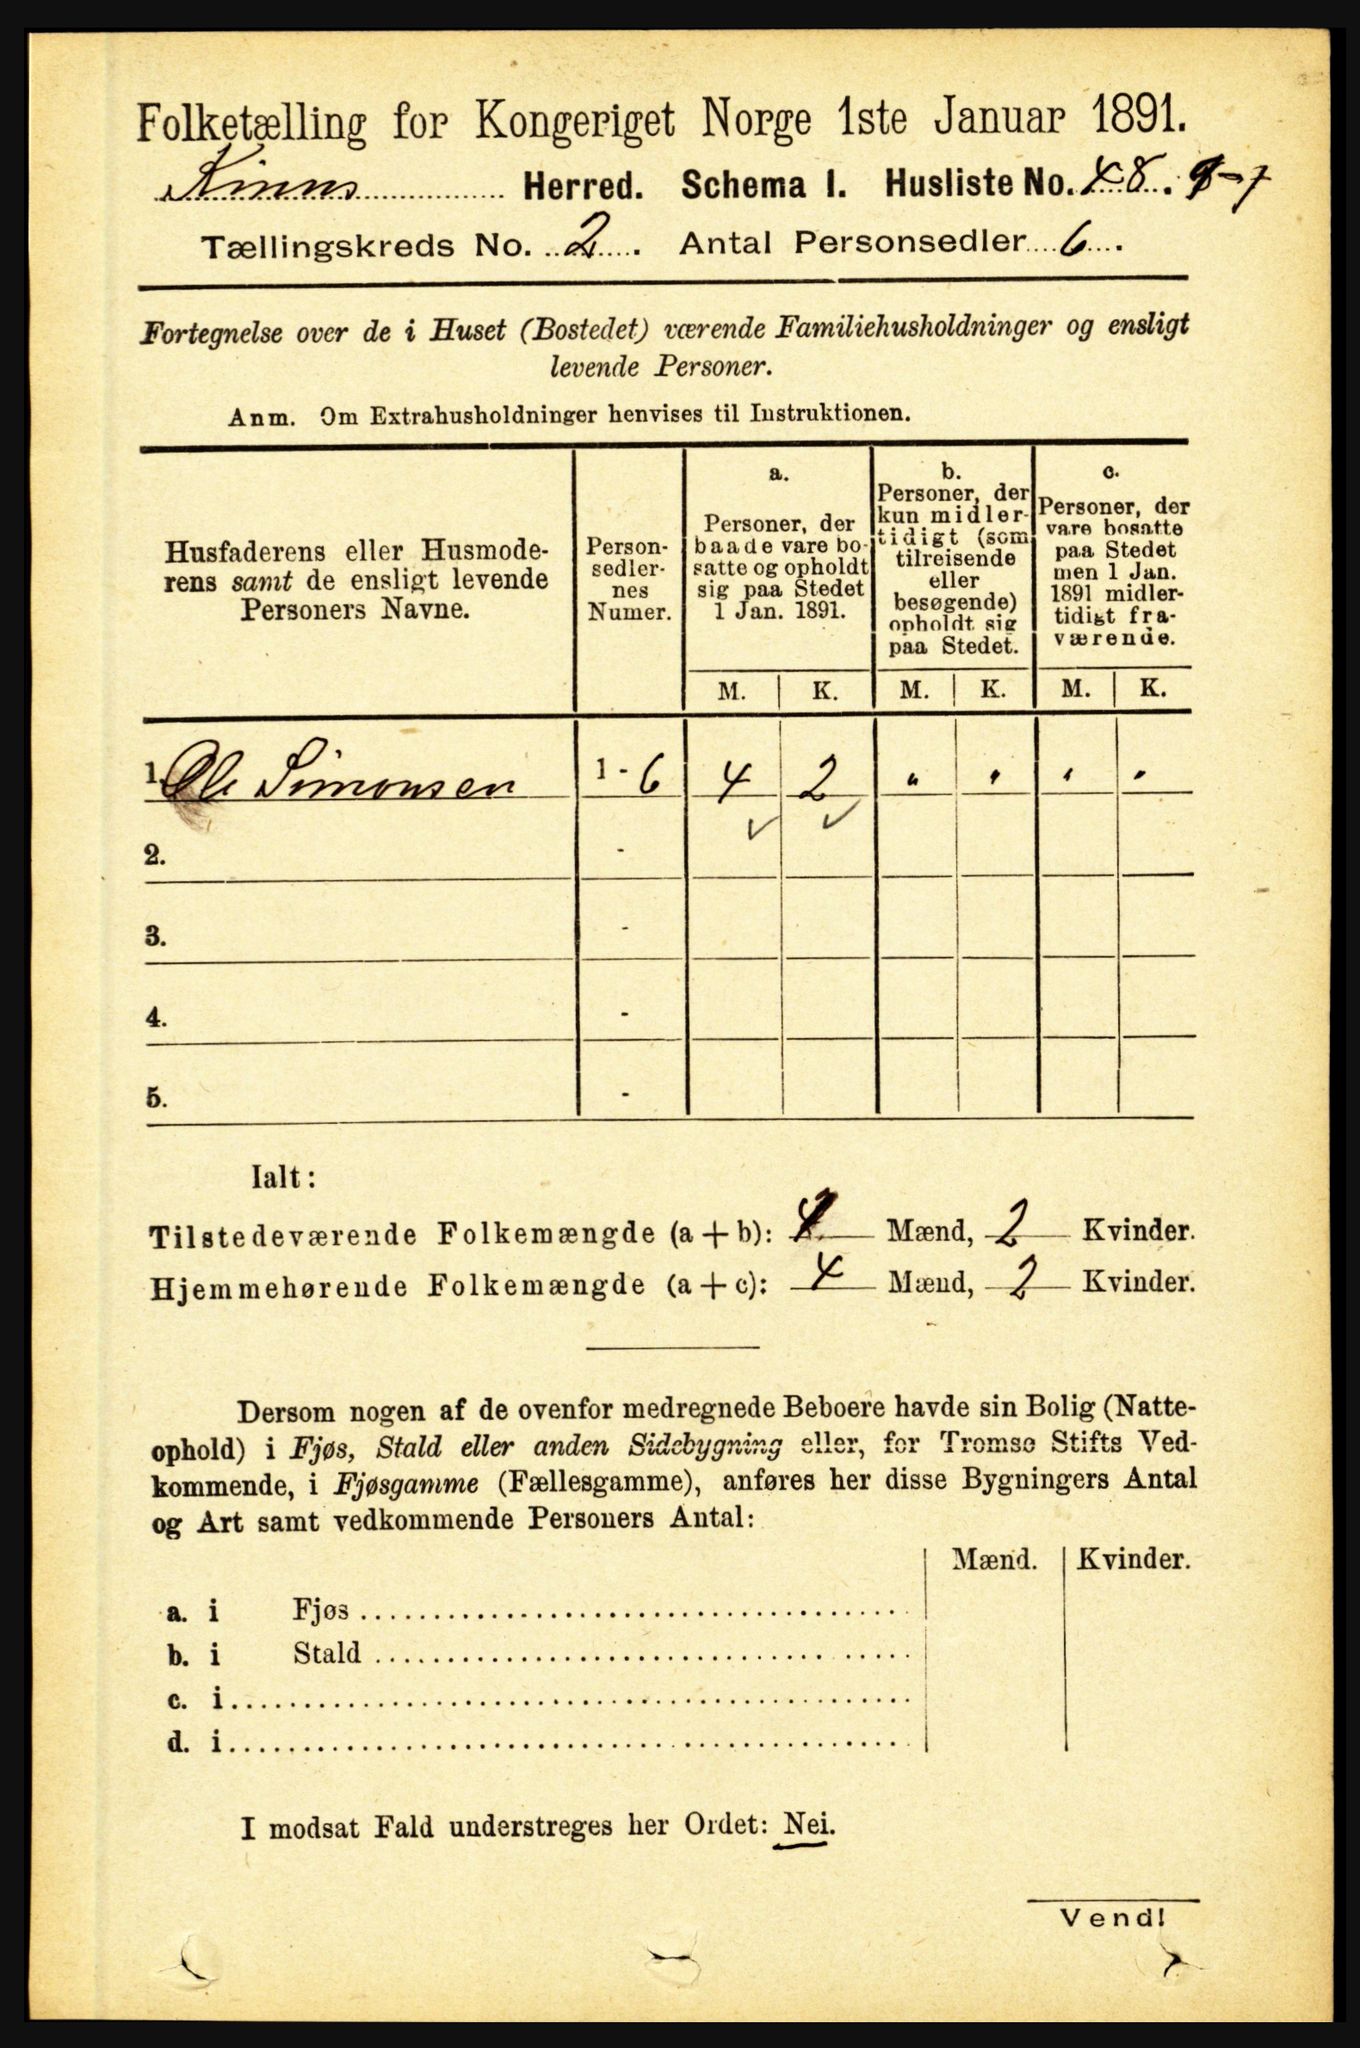 Folketælling for Kongeriget Norge 1ste Januar 1891.
Kinns Herred. Schema I. Husliste No. 48.
Tællingskreds No. 2. Antal Personsedler 6.
Fortegnelse over de i Huset (Bostedet) værende Familiehusholdninger og ensligt
levende Personer.
Anm. Om Extrahusholdninger henvises til Instruktionen.
Husfaderens eller Husmode-
rens samt de ensligt levende
Personers Navne.
Person-
sedler-
nes
Numer.
a.
Personer, der
baade vare bo-
satte og opholdt
sig paa Stedet
1 Jan. 1891.
b.
Personer, der
kun midler-
tidigt (som
tilreisende
eller
besøgende)
opholdt sig
paa Stedet.
c.
Personer, der
vare bosatte
paa Stedet
men 1 Jan.
1891 midler-
tidigt fra-
værende.
M. K. M. K. M. K.
1. Ole Simonsen 1 - 6 4 2 " " " "
2. -
3. -
4. -
5. -
Ialt:
Tilstedeværende Folkemængde (a + b): Mænd, 2 Kvinder.
Hjemmehørende Folkemængde (a + c): 4 Mænd, 2 Kvinder.
Dersom nogen af de ovenfor medregnede Beboere havde sin Bolig (Natte-
ophold) i Fjøs, Stald eller anden Sidebygning eller, for Tromsø Stifts Ved-
kommende, i Fjøsgamme (Fællesgamme), anføres her disse Bygningers Antal
og Art samt vedkommende Personers Antal:
Mænd. Kvinder.
a. i Fjøs
b. i Stald
c. i
d. i
I modsat Fald understreges her Ordet: Nei.
Vend!